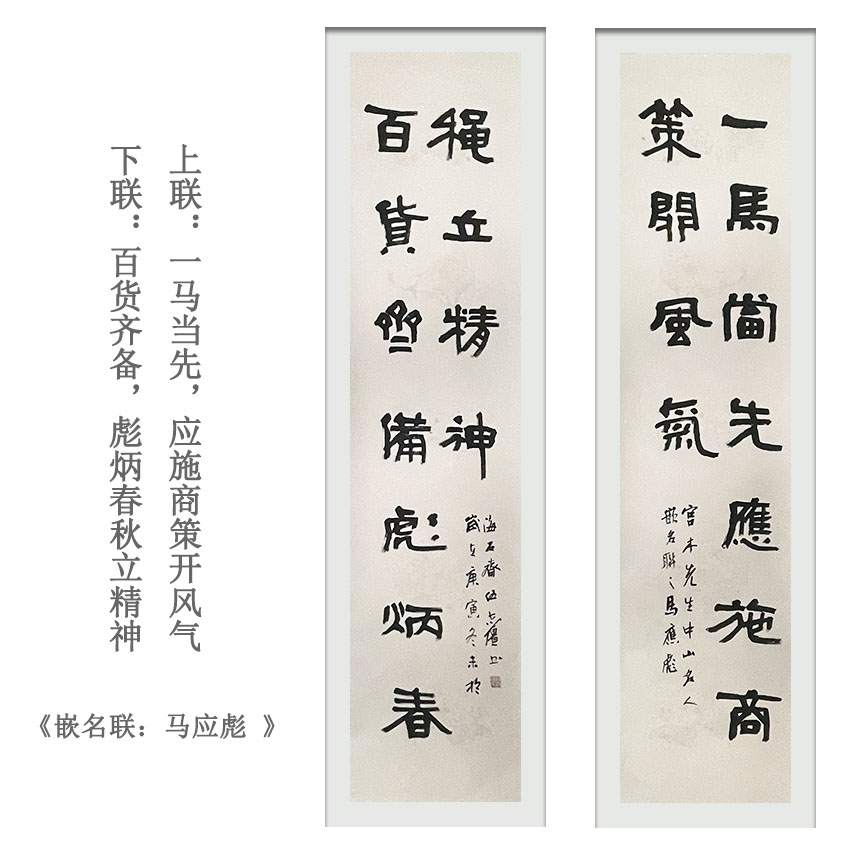 上联：一马当先，应施商策开风气
下联：百货齐备，彪炳春秋立精神
《嵌名联：马应彪 》
一馬當先應施商
策開風氣
宫木先生中山名人
嵌名聯之馬應彪
百貨齊備彪炳春
穐立精神
歲在庚寅冬末於
海石齋伍志彊书